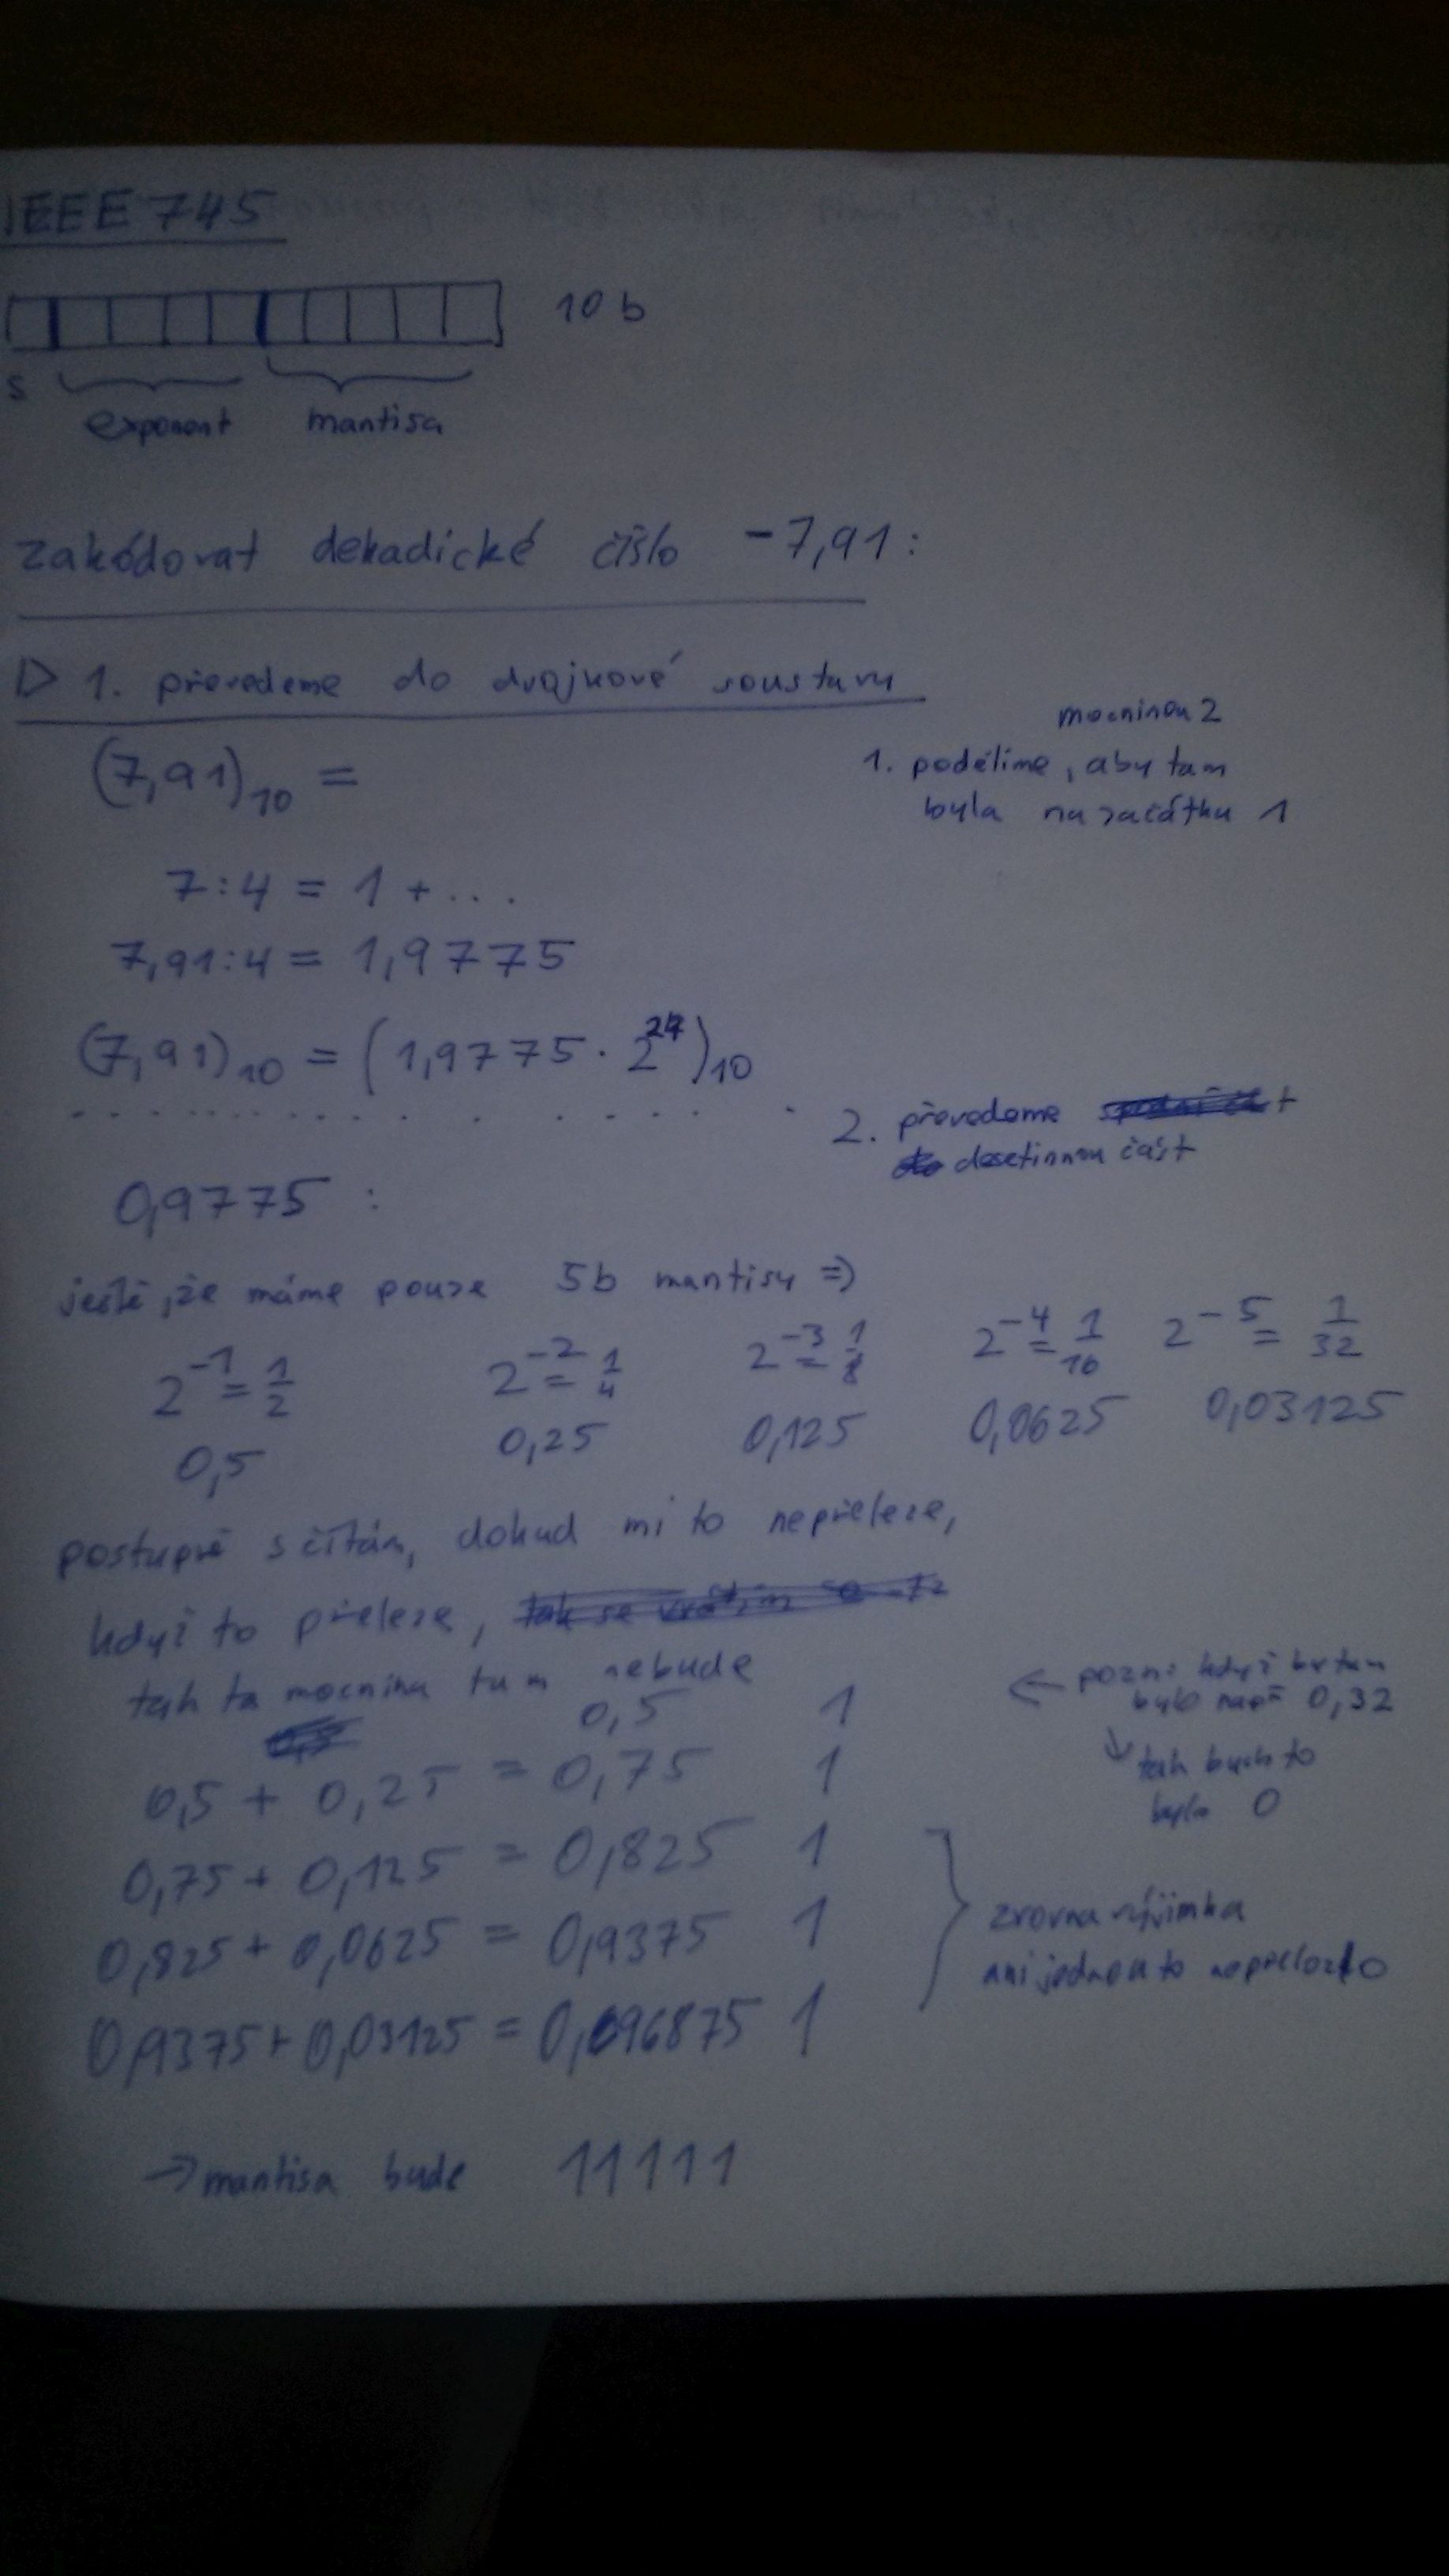 IEEE 745
10 b
s
exponent mantisa
zakódovat dekadické číslo -7,91:
1. převedeme do dvojkové soustavy
mocninou 2
(7,91)10 =
1. podělíme, aby tam
byla na začátku 1
7:4 = 1 + ...
7,91:4 = 1,9775
(7,91)10 = (1,9775 · 2^2)10
2. převedeme
desetinnou část
0,9775 :
ještě, že máme pouze 5b mantisy =>
2^-1 = 1/2 2^-2 = 1/4 2^-3 = 1/8 2^-4 = 1/16 2^-5 = 1/32
0,5 0,25 0,125 0,0625 0,03125
postupně sčítám, dokud mi to nepřeleze,
když to přeleze,
tak ta mocnina tam nebude
← pozn: když by tam
bylo např 0,32
↓ tak bych to
byla 0
0,5 1
0,5 + 0,25 = 0,75 1
0,75 + 0,125 = 0,825 1
0,825 + 0,0625 = 0,9375 1
0,9375 + 0,03125 = 0,096875 1
zrovna výjimka
ani jednou to nepřelezlo
→ mantisa bude 11111